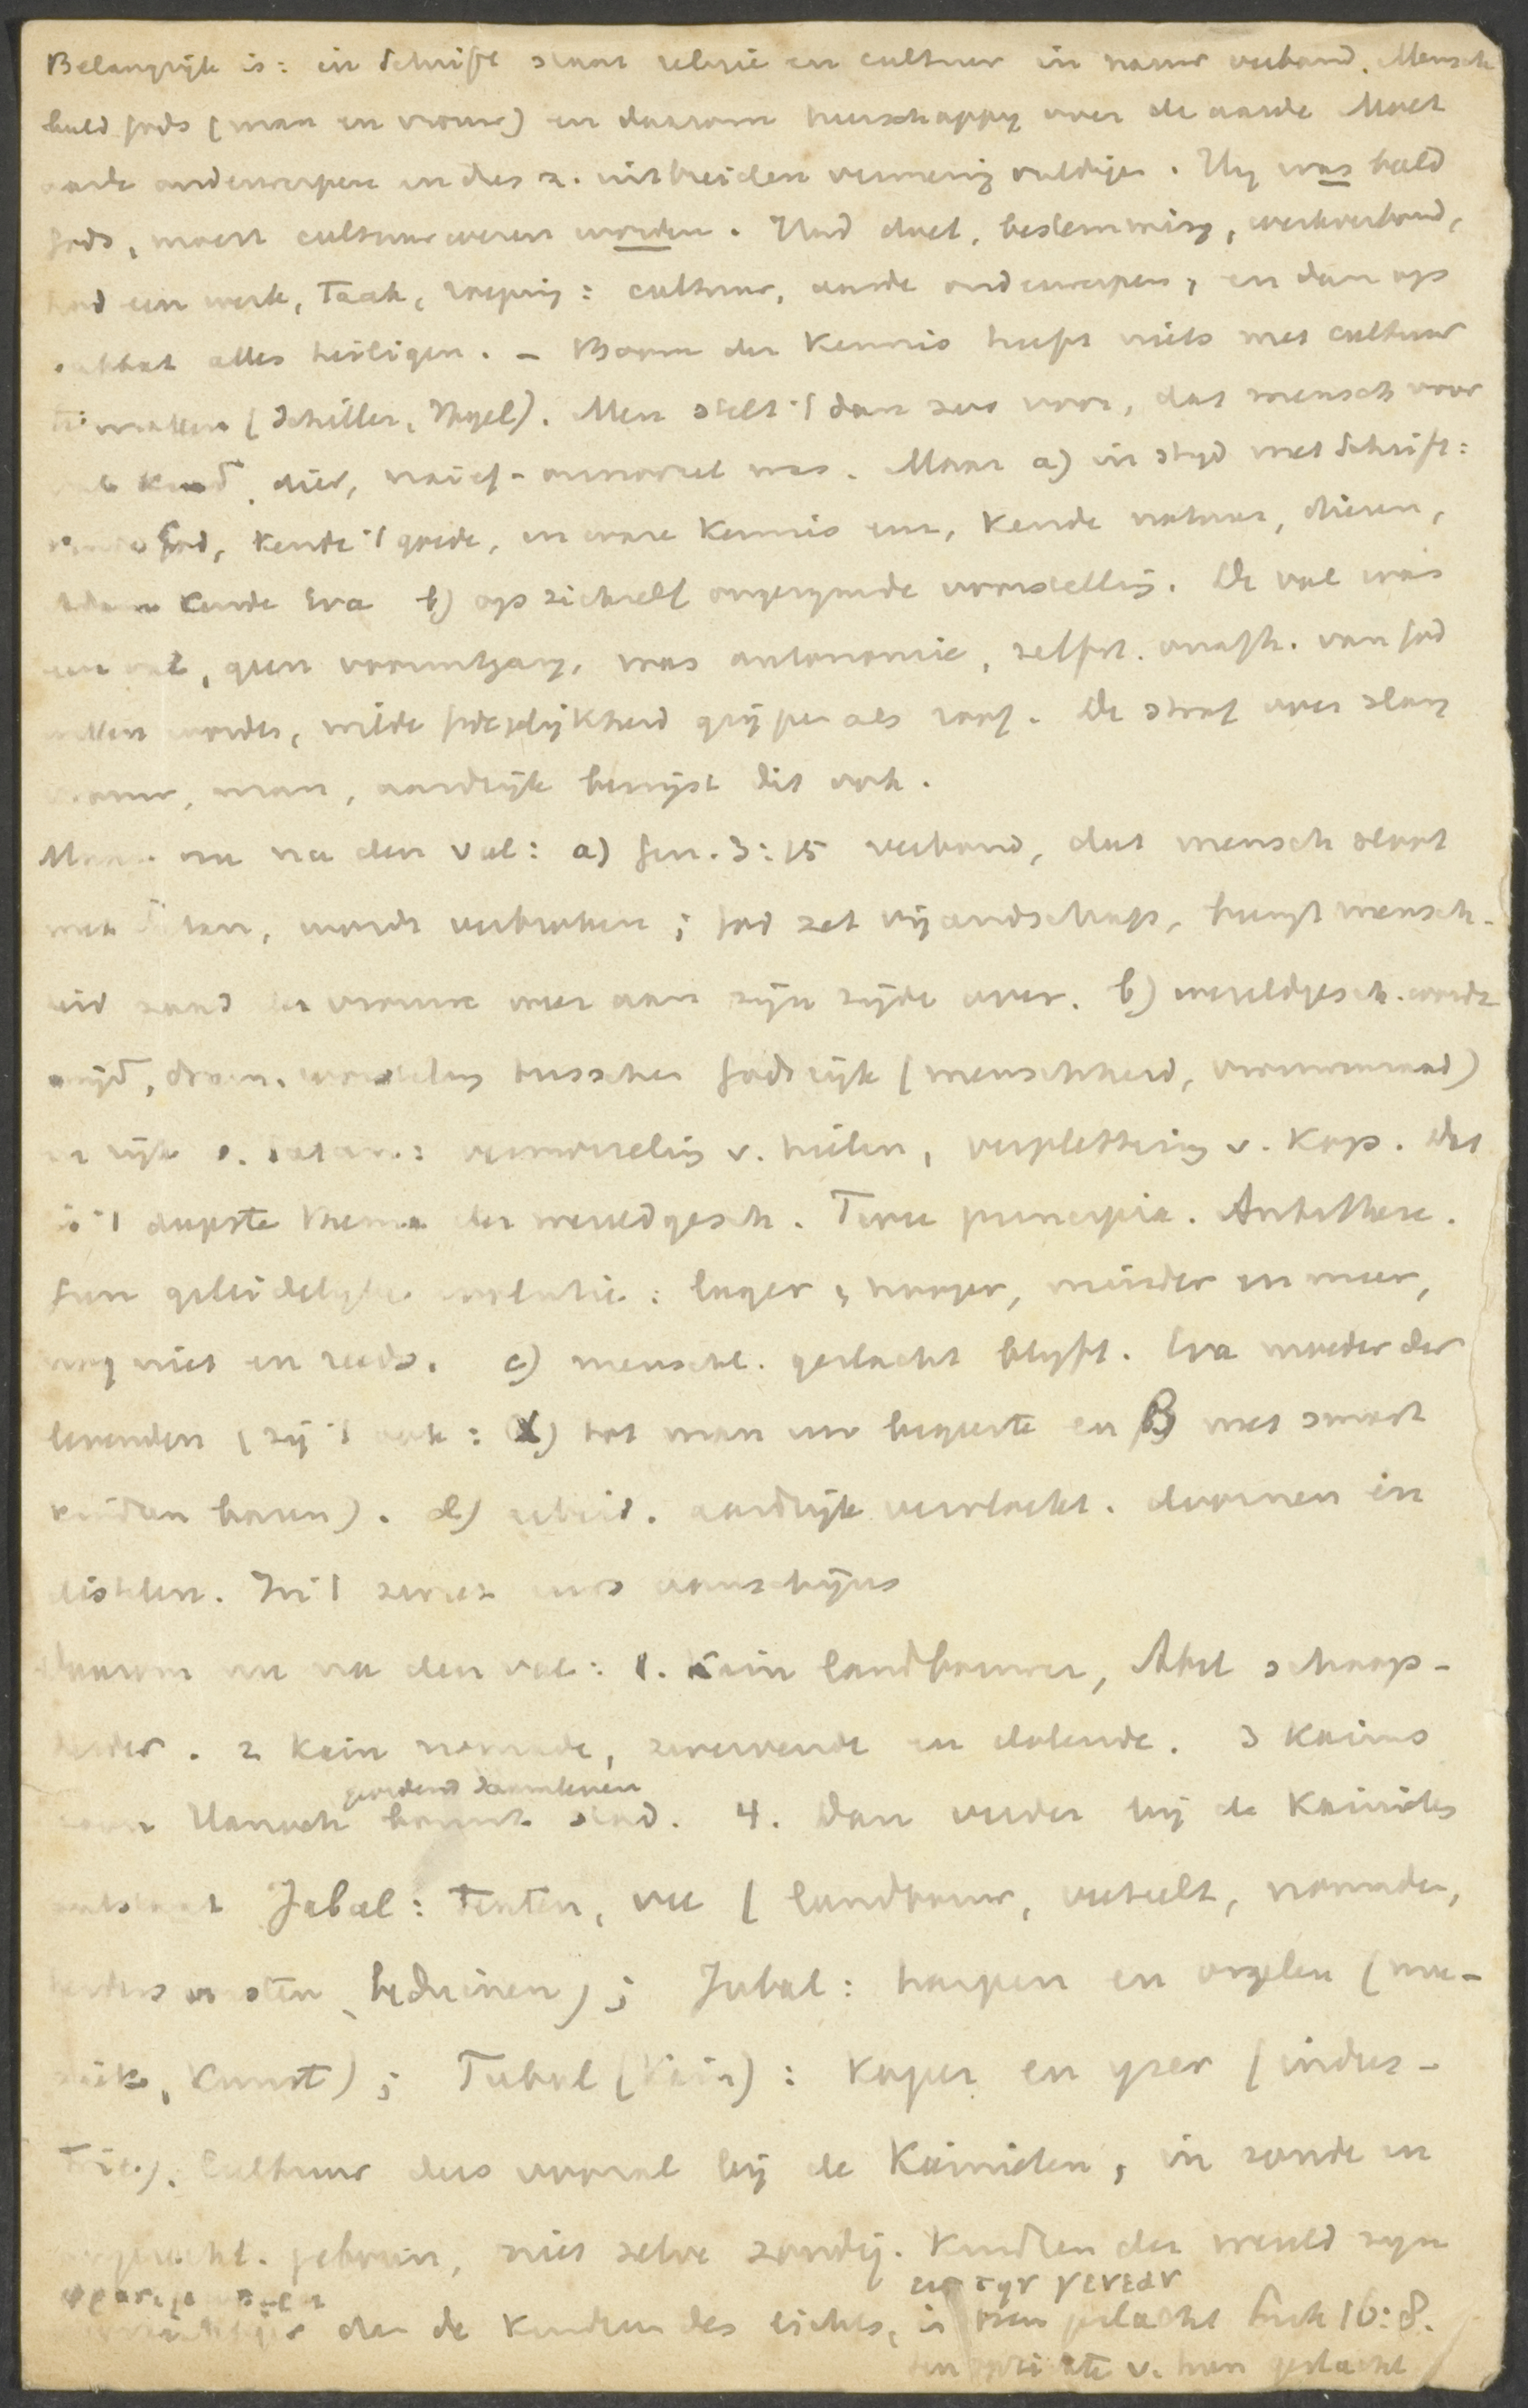 Belangrijk is: in Schrift staat religie en cultuur in nauw verband. Mensch
beeld Gods (man en vrouw) en daarom heerschappy over de aarde. Moet
aarde onderwerpen en dus z. uitbreiden vermenigvuldigen. Hy was beeld
Gods, moest cultuurwezen worden. Had doel, bestemming, werkverbond,
had een werk, taak, roeping: cultuur, aarde onderwerpen, en dan op
sabbat alles heiligen. – Boom der Kennis heeft niets met cultuur
te maken (Schiller, Hegel). Men stelt 't dan zoo voor, dat mensch voor
val kind, dier, naief-onnoozel was. Maar a) in stryd met Schrift:
kende God, kende 't goede, in ware Kennis enz, kende natuur, dieren,
Adam kende Eva b) op zichzelf ongerymde voorstelling. De val was
een val, geen vooruitgang, was autonomie, zelfst. onafh. van God
willen worden, wilde Godgelijkheid grijpen als roof. De straf over slang
vrouw, man, aardrijk bewijst dit ook.
Maar nu na den val: a) Gen. 3:15 verbond, dat mensch sloot
met Satan, wordt verbroken; God zet vijandschap, brengt mensch-
heid zaad der vrouw weer aan zijn zijde over. b) wereldgesch. wordt
strijd, dram. worsteling tusschen Godsrijk (menschheid, vrouwenzaad)
en rijk v. Satan: vermorzeling v. hielen, verplettering v. Kop. Dit
is 't diepste thema der wereldgesch. Twee principia. Antithese.
Geen geleidelyke evolutie: lager, hooger, minder en meer,
nog niet en reeds. c) menschl. geslacht blyft. Eva moeder der
levenden (zij 't ook: α) tot man uw begeerte en β met smart
kinderen baren). d) arbeid. aardrijk vervloekt. doornen en
distelen. In 't zweet uws aanschijns
Daarom nu na den val: 1. Kain landbouwer, Abel schaap-
herder. 2 Kain nomade, zwervende en dolende. 3 Kains
zoon Hanoch bouwt stad. 4. Dan verder bij de Kainieten
ontstaat Jabal: tenten, vee (landbouw, veeteelt, nomaden,
herdersvorsten, beduinen); Jubal: harpen en orgelen (mu-
ziek, Kunst); Tubal (Kain): Koper en yzer (indus-
trie). Cultuur dus vooral bij de Kainieten, in zonde en
gebruik, niet zelve zondig. Kinderen der wereld zyn
dan de Kinderen des lichts, in hun geslacht Luk 16:8.
ten opzichte v. hun geslacht